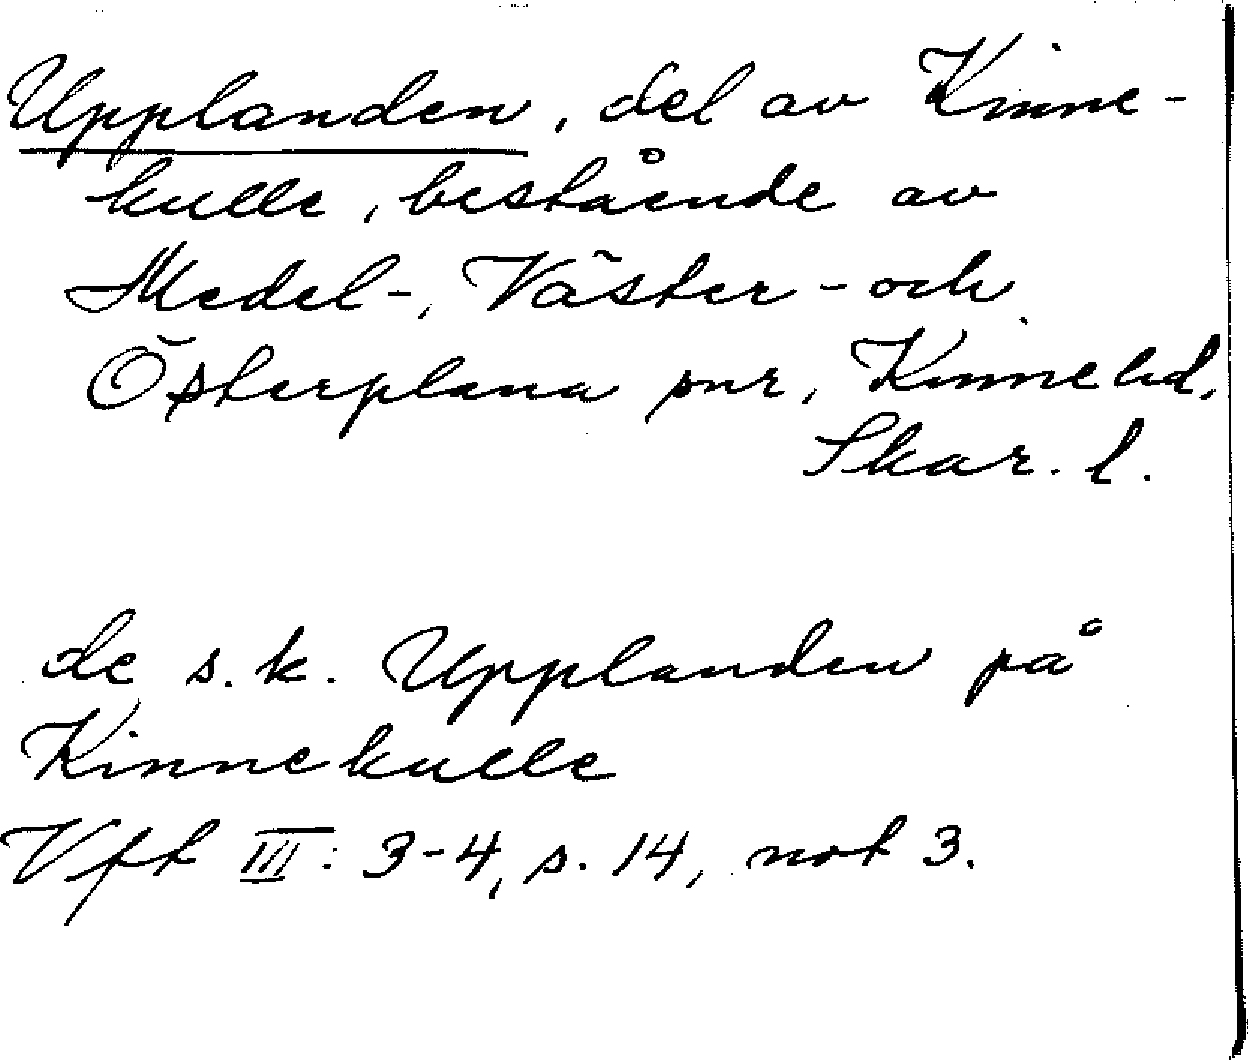 Upplanden, del av Kinne-
kulle, bestående av
Medel-, Väster- och
Österplana snr, Kinne hd,
Skar. l.
de s. k. Upplanden på
Kinnekulle
Vft III: 3-4, s. 14, not 3.